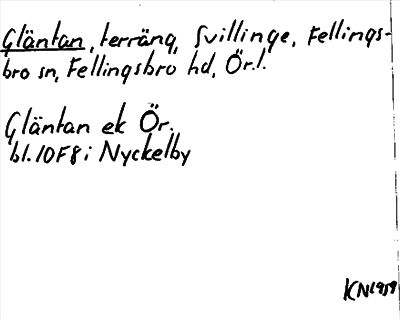 Gläntan, terräng, Svillinge, Fellings-
bro sn, Fellingsbro hd, Ör.l.
Gläntan ek Ör.
bl. 10F8i Nyckelby
KN1959